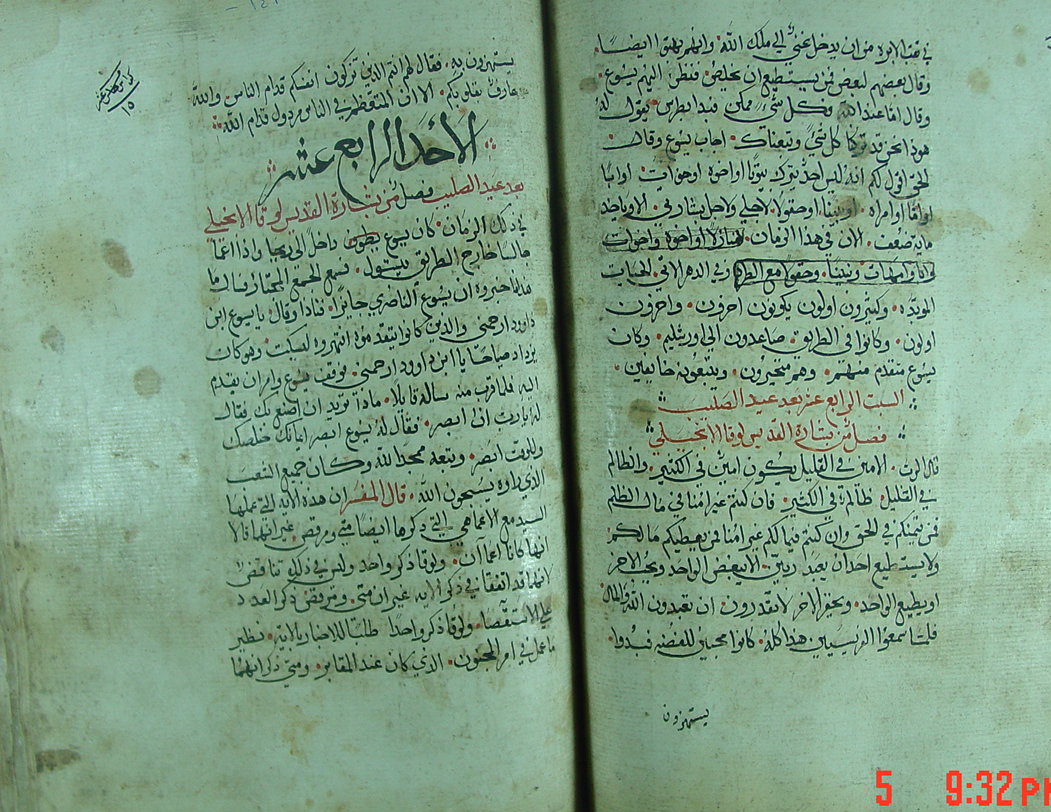 في ثقب الابره من ان يدخل غني الي ملك الله وانهم بهتوا ايضا
وقال بعضهم لبعض من يستطيع ان يخلص فنظر اليهم يسوع
وقال اما عند الله وكل شي ممكن فبدا بطرس يقول له
هوذا نحن قد تركنا كل شي وتبعناك اجاب يسوع وقال
الحق اقول لكم انه ليس احد يترك بيوتا او اخوه او خوات او ابا
او اما او امراه او بنينا او حقولا لاجلي ولاجل بشارتي الا وياخد
مايه ضعف الان في هذا الزمان منازلا او اخوة واخوات
وابا وامهات وبنينا وحقولا مع الطرد وفي الدهر الاتي الحيات
الموبده وكثيرون اولون يكونون اخرون واخرون
اولون وكانوا في الطريق صاعدون الي اورشليم وكان
يسوع متقدم منهم وهم متحيرون ويتبعونه خايفين
السبت الرابع عشر بعد عيد الصليب
فصل من بشارة القديس لوقا الانجيلي
قال الرب الامين في القليل يكون امين في الكثير والظالم
في القليل ظالم في الكثير فان كنتم غير امنا في مال الظلم
فمن يتمنكم في الحق وان كنتم فيما لكم غير امنا فمن يعطيكم مالكم
ولا يستطيع احد ان يعبد ربين الا يبغض الواحد ويحب الاخر
او يطيع الواحد ويحقر الاخر لا تقدرون ان تعبدون الله والمال
فلما سمعوا الفريسيين هذا كله كانوا محبين للفضه فبدوا
يستهزون
يستهزون به فقال لهم انتم الذين تزكون انفسكم قدام الناس والله
عارف بقلوبكم الان المتعظم في الناس مرذول قدام الله
الاحد الرابع عشر
بعد عيد الصليب فصل من بشارة القديس لوقا الانجيلي
في ذلك الزمان كان يسوع داخل الي ريحا واذا اعما
جالسا خارج الطريق يتسول فسمع الجمع المجتاز فسال ما
هذا فاخبروه ان يسوع الناصري جايزا فنادا وقال يا يسوع ابن
داوود ارحمني والذين كانوا يتقدموه انتهروه ليسكت وهو كان
يزداد صياحا يا ابن داوود ارحمني فوقف يسوع وامر ان يقدم
اليه فلما قرب منه ساله قايلا ماذا تريد ان اصنع لك فقال
له يا رب ان ابصر فقال له يسوع ابصر ايمانك خلصك
وللوقت ابصر وتبعه ممجدا لله وكان جميع الشعب
الذي راوه يسبحون الله قال المفسر ان هذه الايه التي عملها
السيد مع الاعما هي التي ذكرها ايضا متي ومرقص غير انهما قالا
انهما كانا اعماآن ولوقا ذكر واحد وليس في ذلك تناقض
لانهما قد اتفقا في ذكر الايه غير ان متي ومرقص ذكر العدد
علي الاستقصا ولوقا ذكر واحدا طلبا للاخبار بالايه نظير
ما عمل في امر المجنون الذي كان عند المقابر ومتي ذكر انهما
١٥
5 9:32 PM